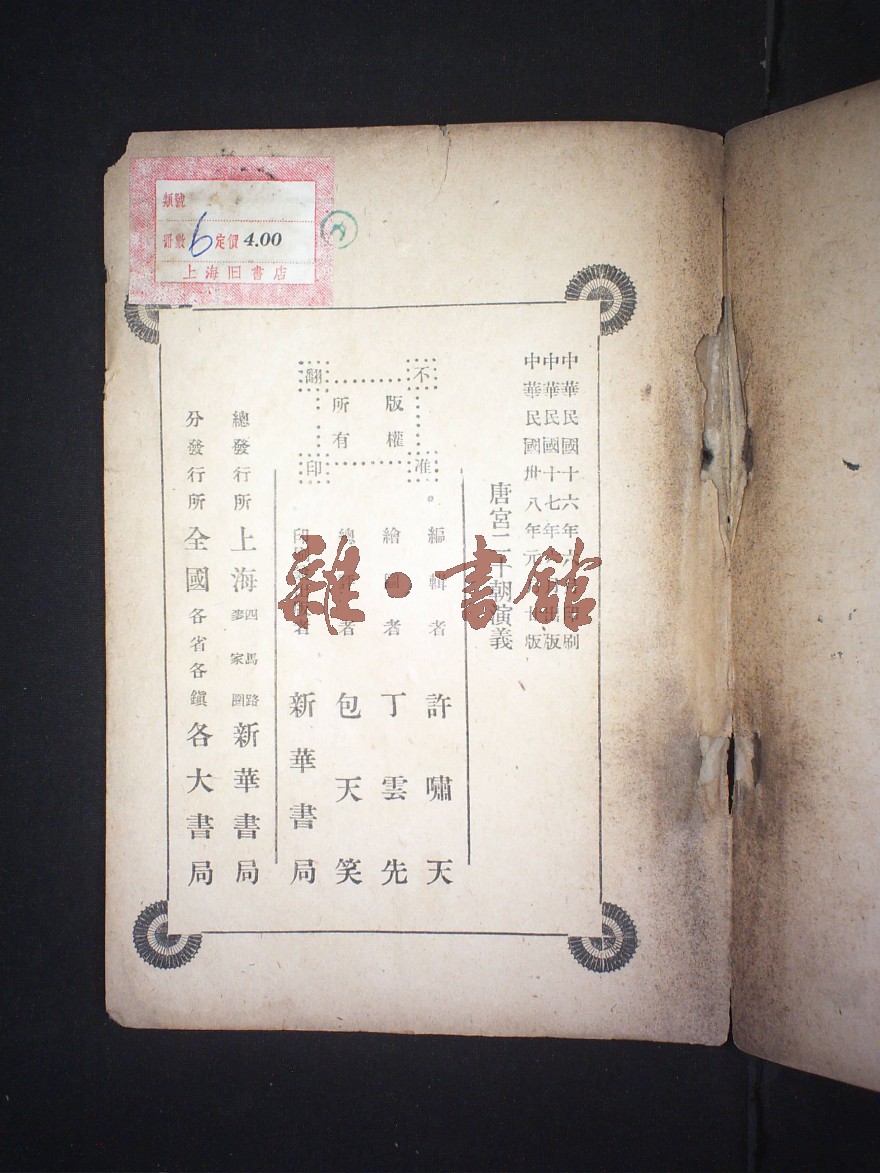 類號
冊數 6 定價 4.00
上海旧書店
中華民國十六年六 印刷
中華民國十七年 版
中華民國卅八年元 廿版
唐宮二十朝演義
不准翻印
版權所有
編輯者 許嘯天
繪圖者 丁雲先
總 者 包天笑
印 者 新華書局
總發行所 上海四馬路麥家圈 新華書局
分發行所 全國各省各鎮 各大書局
雜·書館